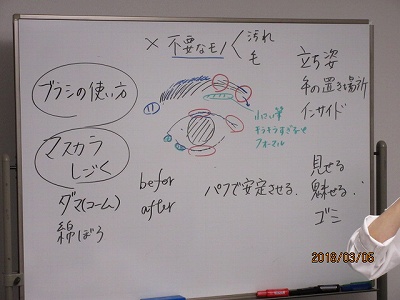 × 不要なモノ < 汚れ
毛
ブラシの使い方
マスカラ
しごく
ダマ(コーム)
綿ぼう
befor
after
キラキラすぎると
フォーマル
パフで安定させる、
立ち姿
手の置き場所
インサイド
見せる
魅せる
ゴミ
2016/03/05